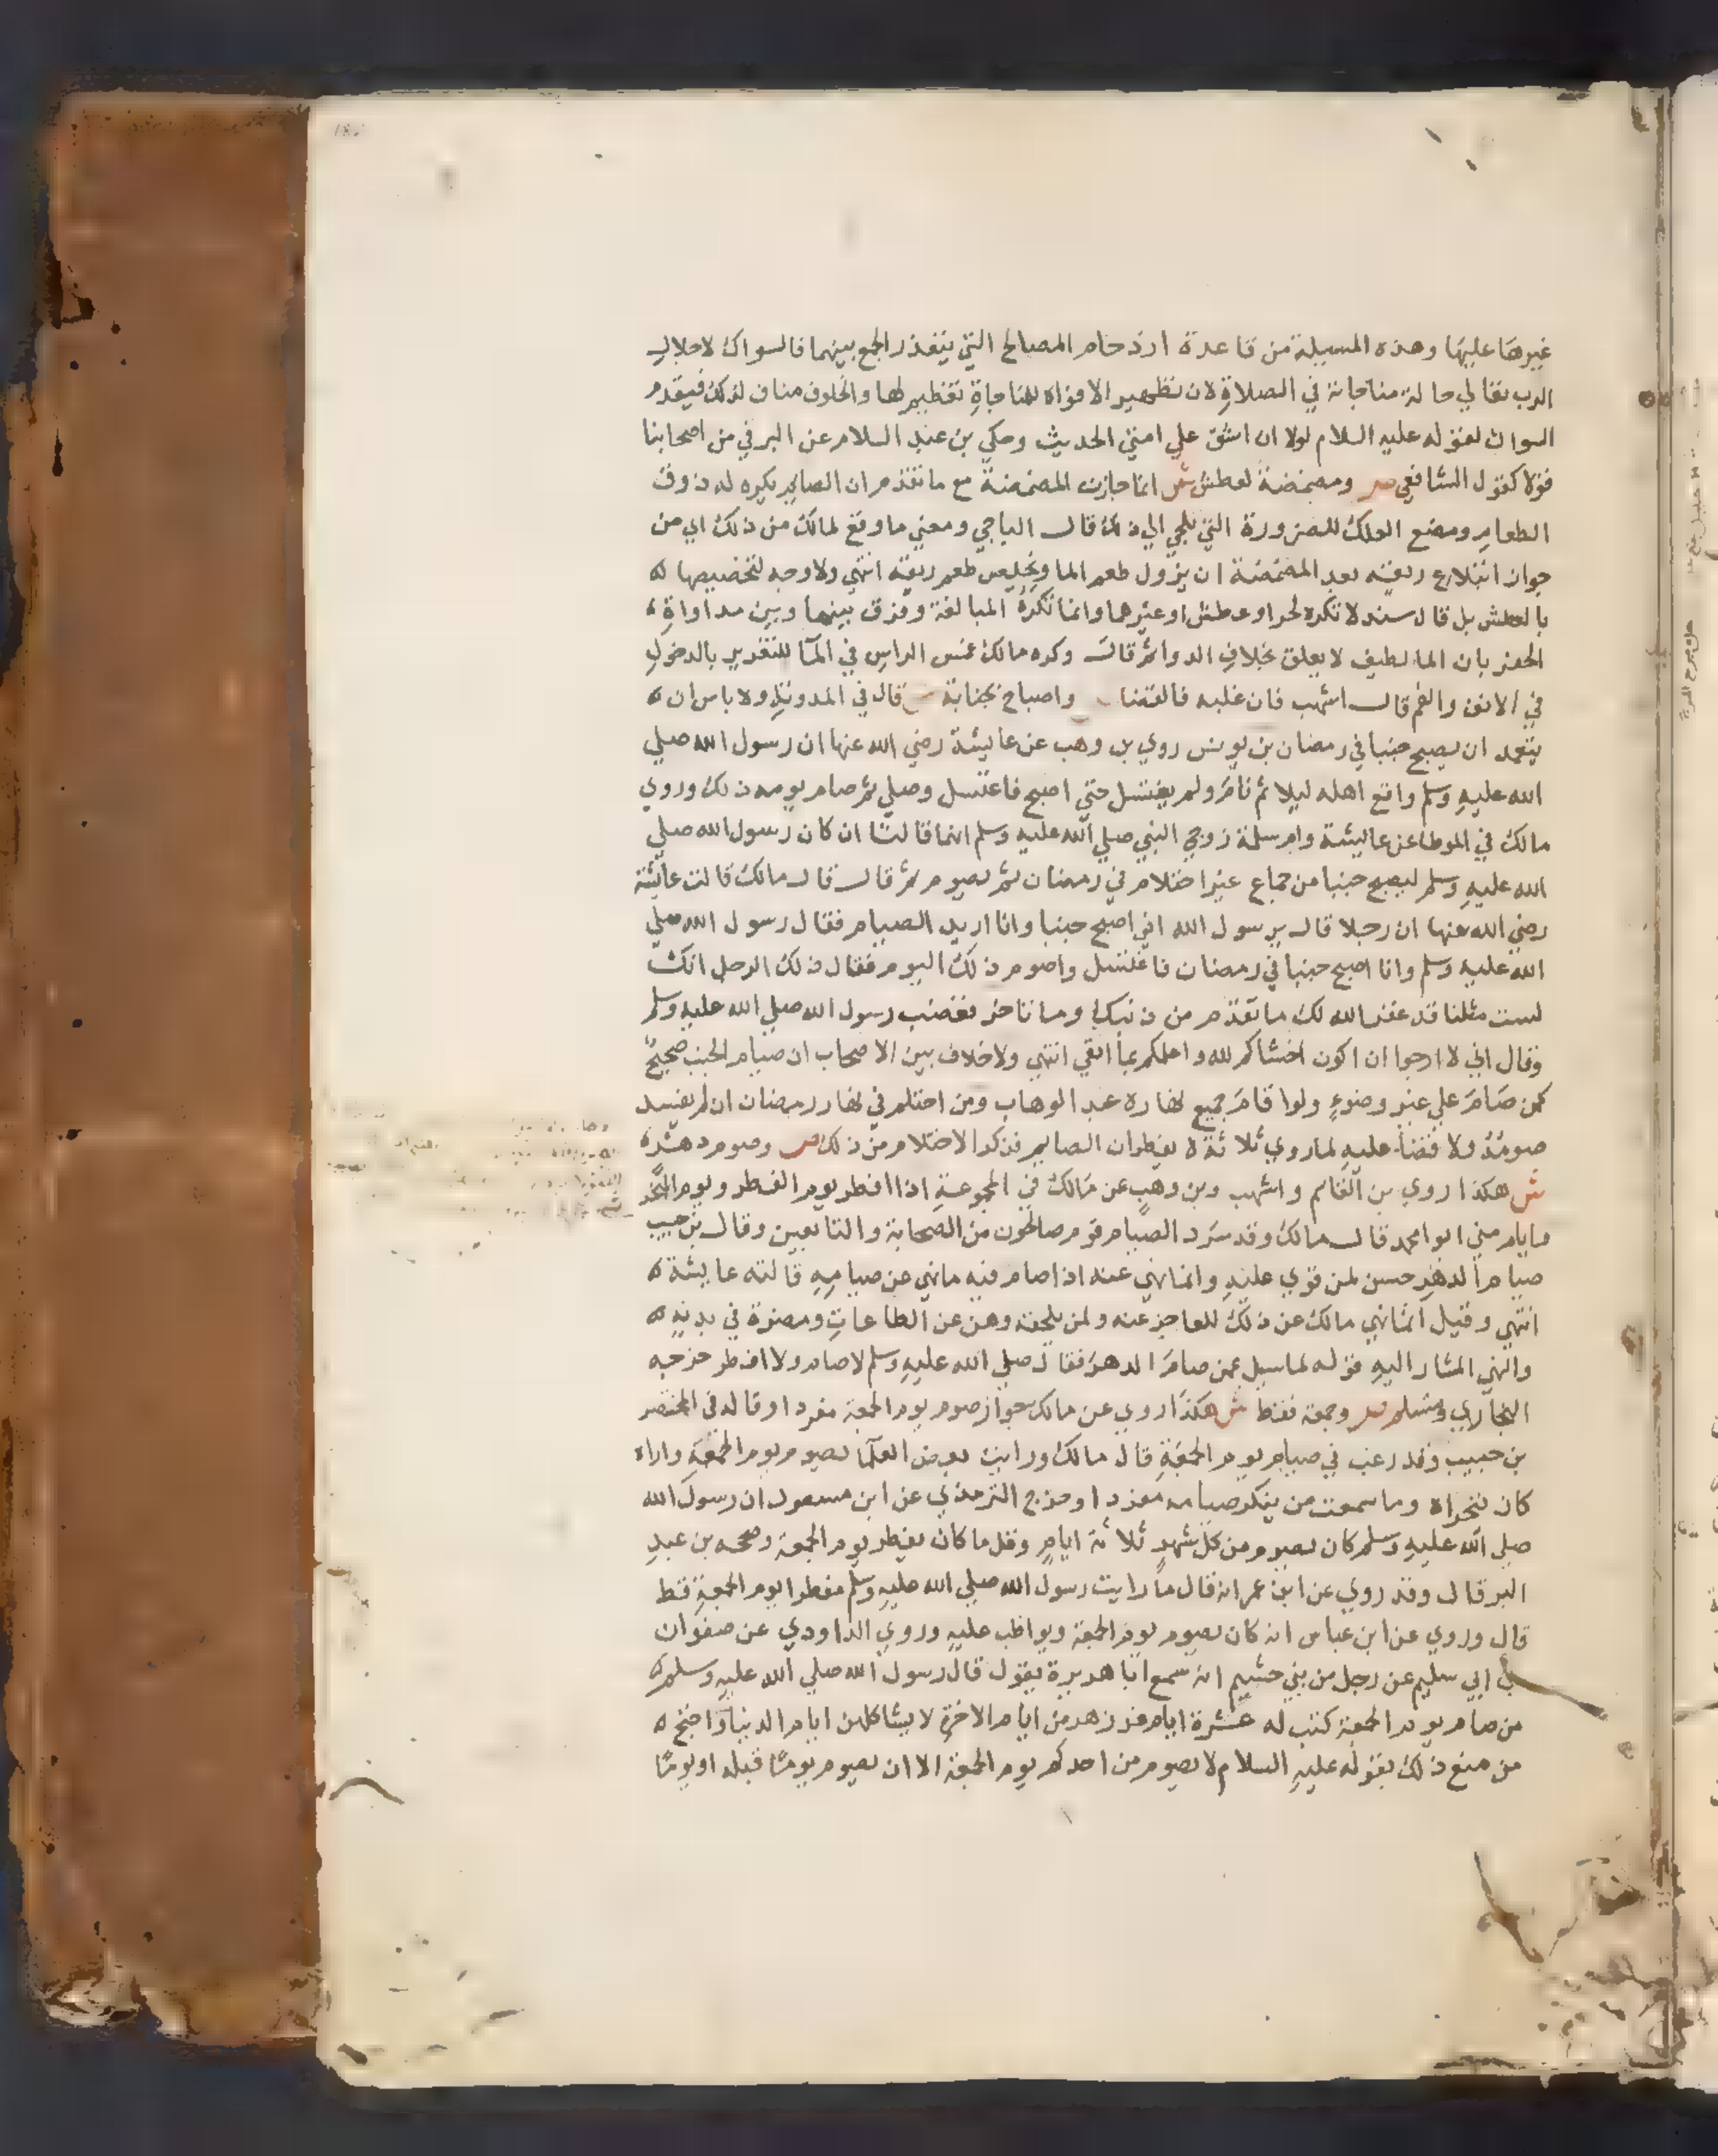 غيرها عليها وهذه المسيلة من قاعدة ازدحام المصالح التي يتعذر الجمع بينهما فالسواك لاجلال
الرب تعالي حالة مناجاته في الصلاة لان تطهير الافواه للمناجاة تعظيم لها والخلوف مناف لذلك فيقدم
السواك لقوله عليه السلام لولا ان اشق علي امتي الحديث وحكي بن عبد السلام عن البرقي من اصحابنا
قولا كقول الشافعي ص ومضمضة لعطش ش انما جازت المضمضة مع ما تقدم ان الصايم يكره له ذوق
الطعام ومضغ العلك للضرورة التي تلجي الي ذلك قال الباجي ومعني ما وقع لمالك من ذلك اي من
جواز ابتلاع ريقه بعد المضمضة ان يزول طعم الما ويخلص طعم ريقه انتهي ولا وجه لتخصيصها
بالعطش بل قال سند لا تكره لحر او عطش او غيرهما وانما تكره المبالغة وفرق بينهما وبين مداواة
الحفر بان الما لطيف لا يعلق بخلاف الدوا ثم قال وكره مالك غمس الراس في المآ للتغرير بالدخول
في الانف والفم قال اشهب فان غلبه فالقضا ص واصباح بجنابة ش قال في المدونة ولا باس ان
يتعمد ان يصبح جنبا في رمضان بن يونس روي بن وهب عن عايشة رضي الله عنها ان رسول الله صلي
الله عليه وسلم واقع اهله ليلا ثم نام ولم يغتسل حتي اصبح فاغتسل وصلي ثم صام يومه ذلك وروي
مالك في الموطا عن عايشة وام سلمة زوجي النبي صلي الله عليه وسلم انهما قالتا ان كان رسول الله صلي
الله عليه وسلم ليصبح جنبا من جماع غير احتلام في رمضان ثم يصوم ثم قال قال مالك قالت عايشة
رضي الله عنها ان رجلا قال يرسول الله اني اصبح جنبا وانا اريد الصيام فقال رسول الله صلي
الله عليه وسلم وانا اصبح جنبا في رمضان فاغتسل واصوم ذلك اليوم فقال ذلك الرجل انك
لست مثلنا قد غفر الله لك ما تقدم من ذنبك وما تاخر فغضب رسول الله صلي الله عليه وسلم
وقال اني لا ارجوا ان اكون اخشاكم لله واعلمكم بما اتقي انتهي ولا خلاف بين الاصحاب ان صيام الجنب صحيح
كمن صام علي غير وضوء ولوا قام جميع نهاره عبد الوهاب ومن احتلم في نهار رمضان ان لم يفسد
صومه ولا قضا عليه لما روي ثلاثة لا يفطران الصايم فذكرا الاحتلام من ذلك ص وصوم دهر
ش هكذا روي بن القاسم واشهب وبن وهب عن مالك في المجموعة اذا افطر يوم الفطر ويوم النحر
وايام مني ابو محمد قال مالك وقد سرد الصيام قوم صالحون من الصحابة والتابعين وقال بن حبيب
صيام الدهر حسن لمن قوي عليه وانما نهي عنه اذا صام فيه ما نهي عن صيامه قالته عايشة
انتهي وقيل انما نهي مالك عن ذلك للعاجز عنه ولمن يلحقه وهن عن الطاعات ومضرة في بدنه
والنهي المشار اليه قوله لما سيل عمن صام الدهر فقال صلي الله عليه وسلم لا صام ولا افطر خرجه
البخاري ومسلم ص وجمعة فقط ش هكذا روي عن مالك جواز صوم يوم الجمعة مفردا وقاله في المختصر
بن حبيب وقد رغب في صيام يوم الجمعة قال مالك ورايت بعض العلما يصوم يوم الجمعة واراه
كان يتحراه وما سمعت من ينكر صيامه مفردا وخرج الترمذي عن ابن مسعود ان رسول الله
صلي الله عليه وسلم كان يصوم من كل شهر ثلاثة ايام وقل ما كان يفطر يوم الجمعة وصححه بن عبد
البر قال وقد روي عن ابن عمر انه قال ما رايت رسول الله صلي الله عليه وسلم مفطرا يوم الجمعة قط
قال وروي عن ابن عباس انه كان يصوم يوم الجمعة ويواظب عليه وروي الداودي عن صفوان
بن ابي سليم عن رجل من بني حشيم انه سمع ابا هريرة يقول قال رسول الله صلي الله عليه وسلم
من صام يوم الجمعة كتب له عشرة ايام من ايام الاخرة لا يشاكلهن ايام الدنيا واحتج
من منع ذلك بقوله عليه السلام لا يصومن احدكم يوم الجمعة الا ان يصوم يوما قبله او يوما